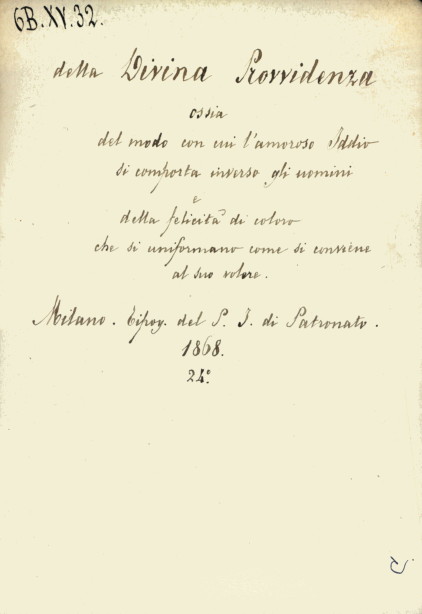 6B.XV.32.
della Divina Provvidenza
ossia
del modo con cui l'amoroso Iddio
si comporta inverso gli uomini
e
della felicità di coloro
che si uniformano come si conviene
al suo volere.
Milano. Tipog. del P. I. di Patronato.
1868.
24.°